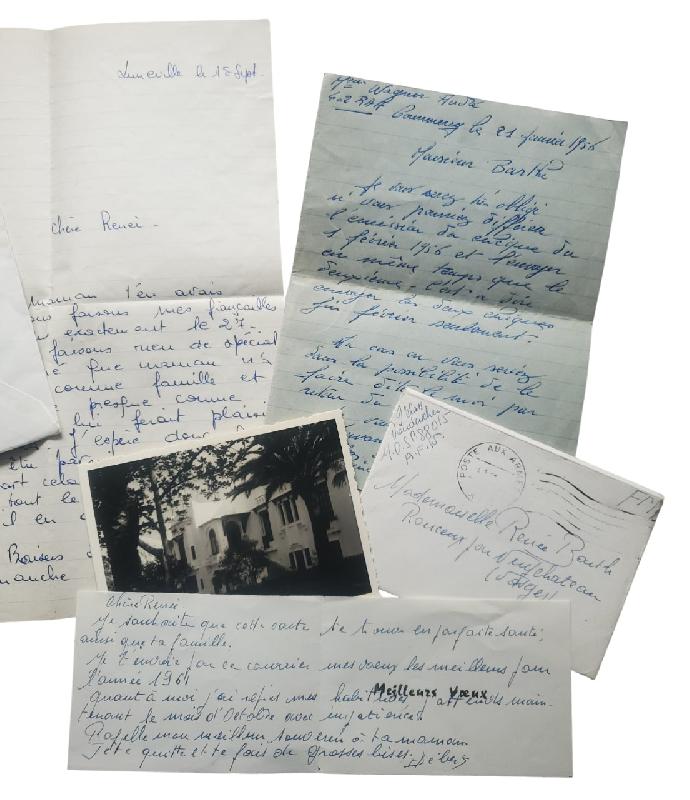 Luneville le 18 Sept.
Chère Renée -
maman t'en avais
faisons mes fiançailles
exactement le 27.
faisons rien de spécial
que maman n'a
comme famille et
presque comme
lui ferait plaisir
J'espère donc
être
cela
tout le
il en
Baisers
manche
Wagner André
Commercy le 21 Janvier 1956
Monsieur Barthe
Je vous serez très obligé
si vous pourriez différer
l'émission du chèque du
1 février 1956 et l'envoyer
en même temps que le
deuxième. C'est à dire
envoyer les deux chèques
fin février seulement.
Au cas ou vous seriez
dans la possibilité de le
faire dite le moi par
retour du
POSTE AUX ARMÉES
Mademoiselle Renée Barth
Rouceux par Neufchateau
(Vosges)
Chère Renée
Je souhaite que cette carte te trouve en parfaite santé,
ainsi que ta famille.
Je t'envoie par ce courrier mes vœux les meilleurs pour
l'année 1961
Meilleurs Vœux
Quant à moi j'ai repris mes habitudes, j'attends main-
tenant le mois d'Octobre avec impatience.
Rapelle mon meilleur souvenir à ta maman
Je te quitte et te fais de grosses bises.